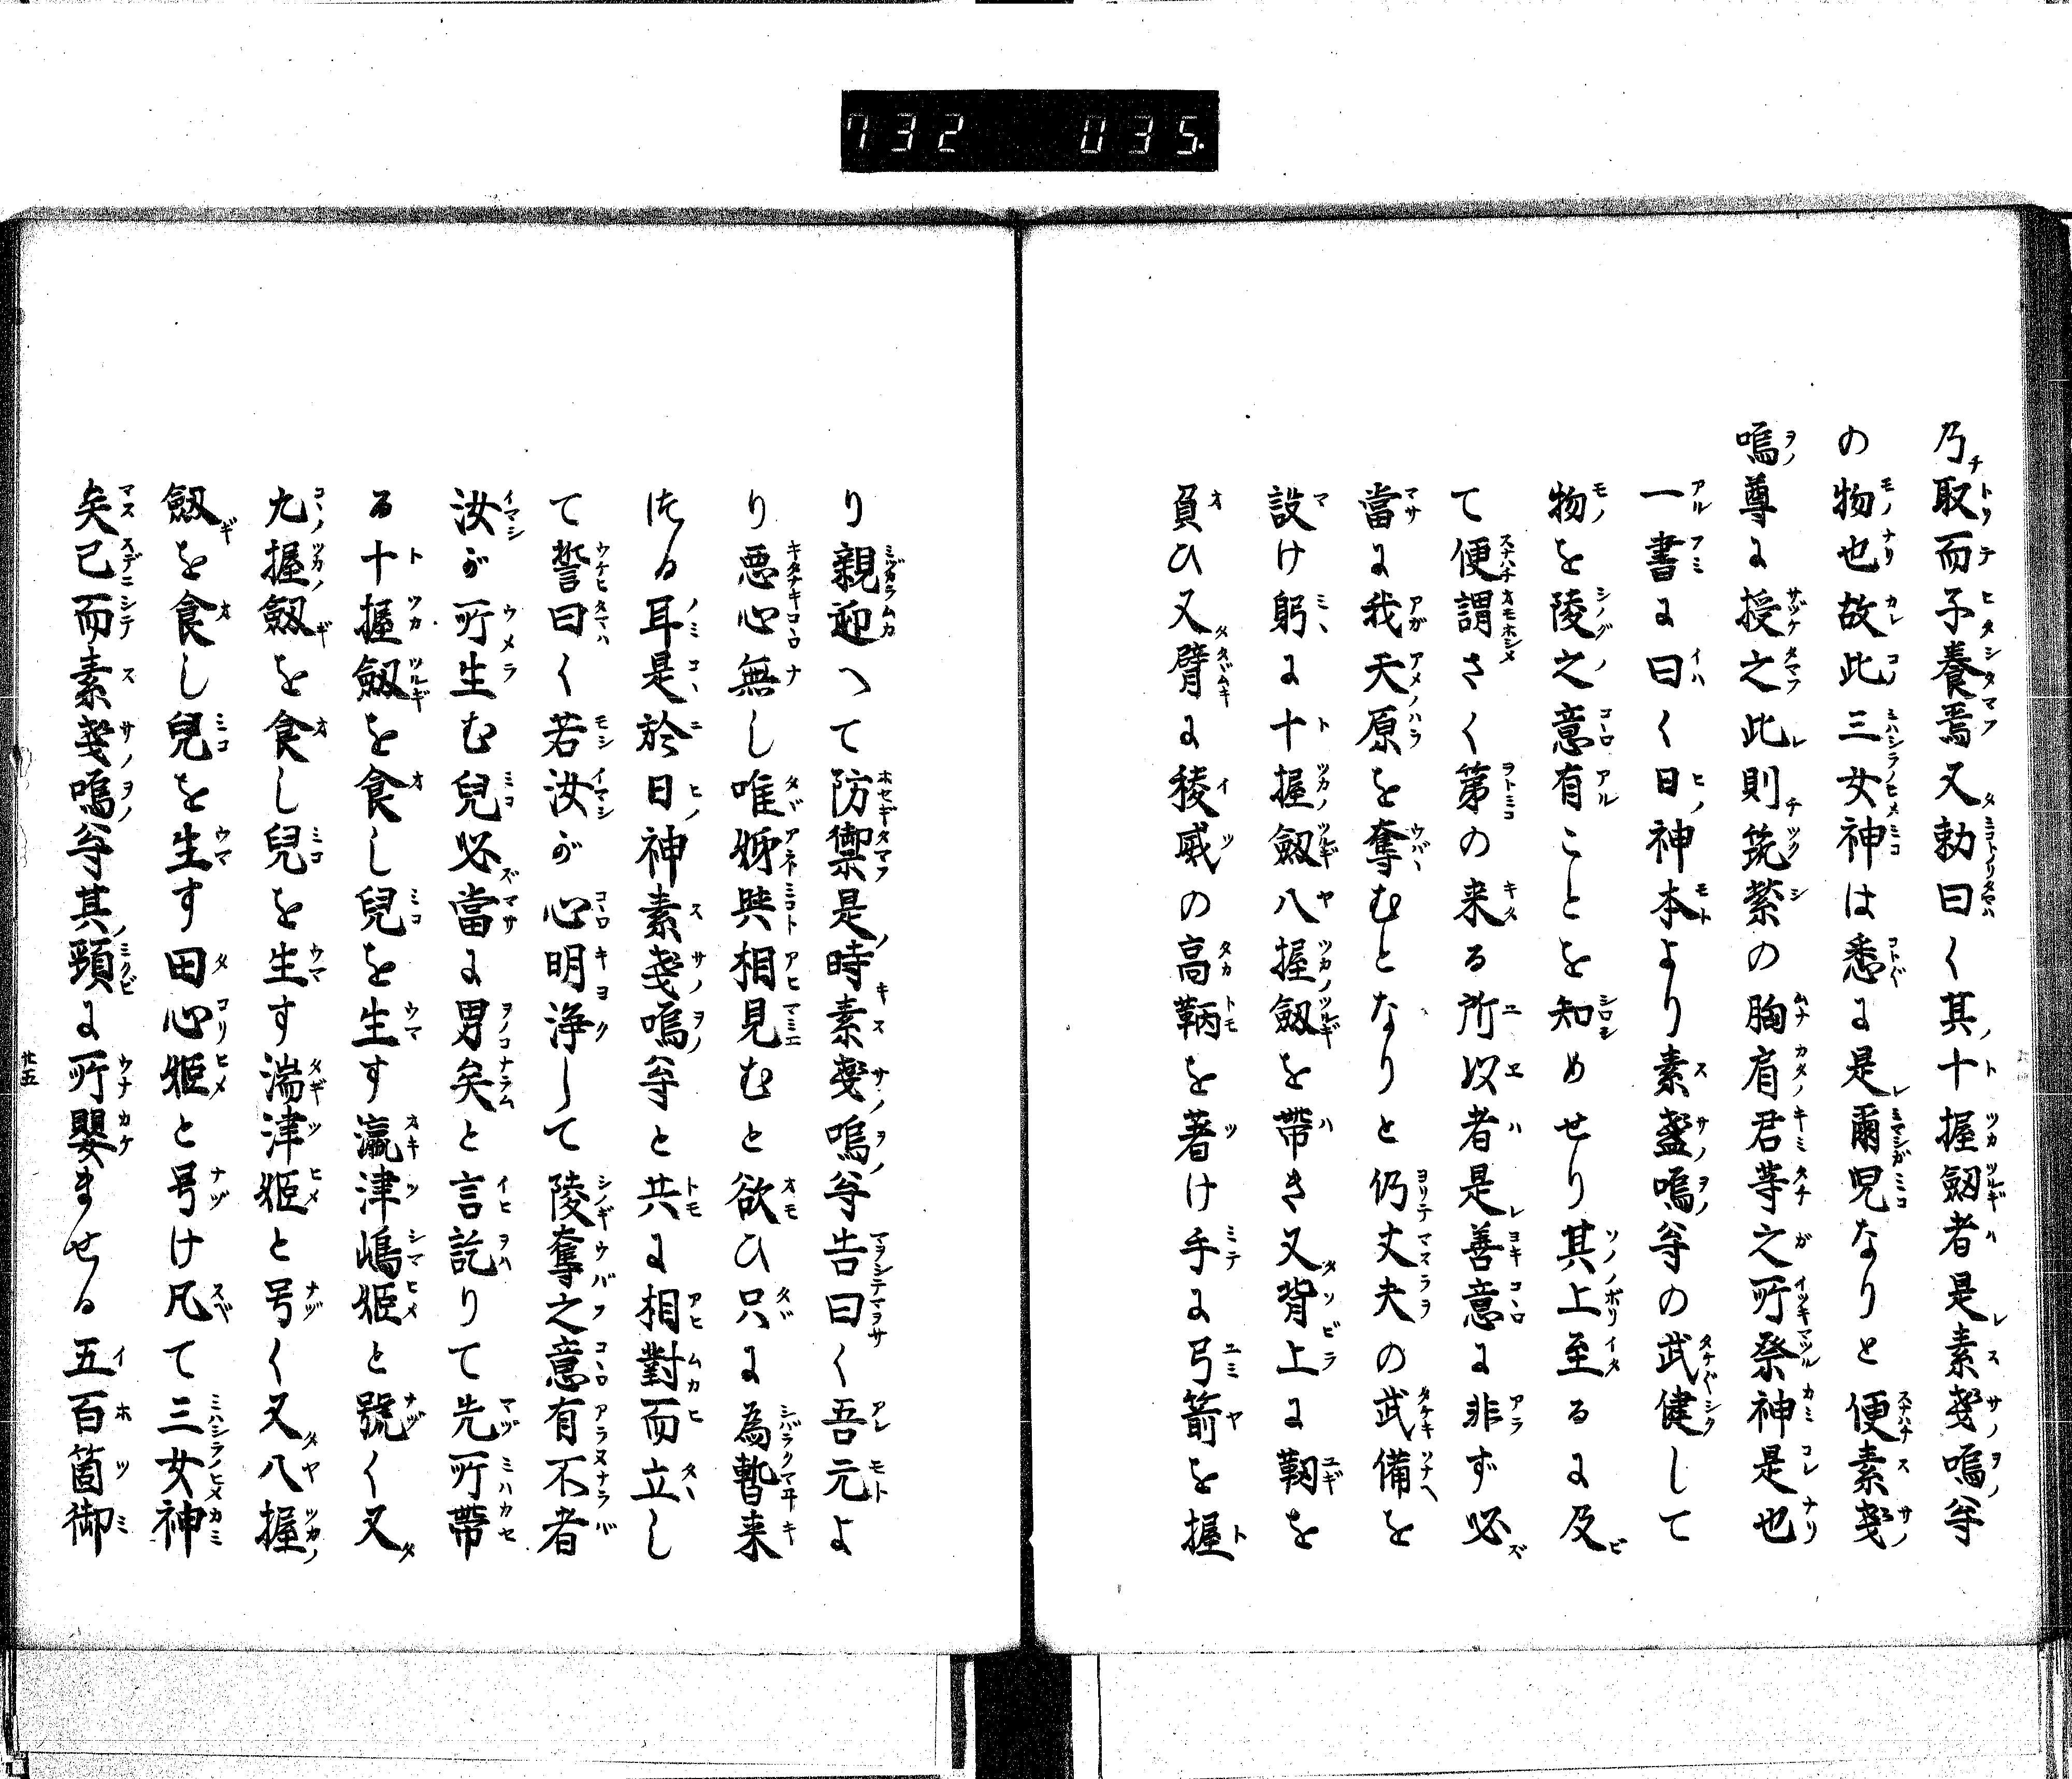 732 035
乃取而子養焉又勅曰く其十握劔者是素戔嗚尊
の物也故此三女神は悉に是爾児なりと便素戔
嗚尊に授之此則筑紫の胸肩君等之所祭神是也
一書に曰く日神本より素盞嗚尊の武健して
物を陵之意有ことを知めせり其上至るに及
て便謂さく弟の来る所以者是善意に非ず必
當に我天原を奪むとなりと仍丈夫の武備を
設け躬に十握劔八握劔を帶き又背上に靫を
負ひ又臂に稜威の高鞆を著け手に弓箭を握
り親迎へて防禦是時素戔嗚尊告曰く吾元よ
り悪心無し唯姉與相見むと欲ひ只に為暫来
つる耳是於日神素戔嗚尊と共に相對而立し
て誓曰く若汝が心明浄して陵奪之意有不者
汝が所生む兒必當に男矣と言訖りて先所帶
る十握劔を食し兒を生す瀛津嶋姫と號く又
九握劔を食し兒を生す湍津姫と号く又八握
劔を食し兒を生す田心姫と号け凡て三女神
矣已而素戔嗚尊其頸に所嬰ませる五百箇御
廿五